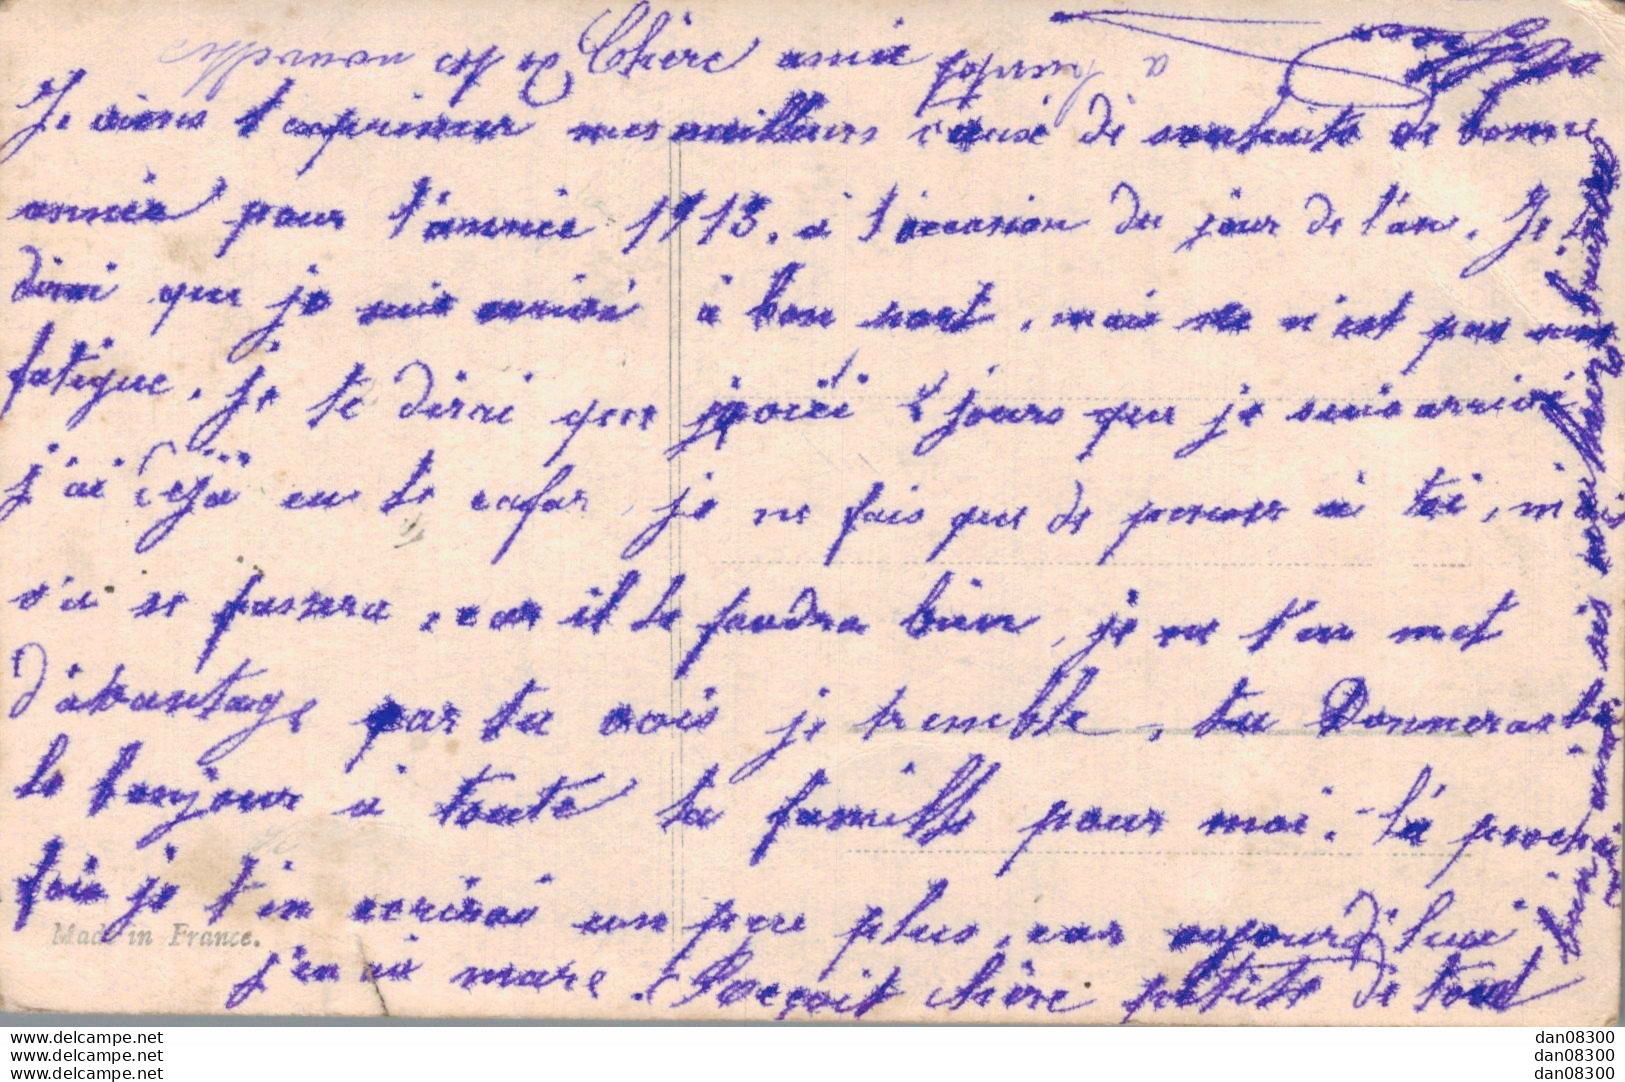 Chère amie
Je viens t'exprimer mes meilleurs vœux de souhaits de bonne
année pour l'année 1913. à l'occasion du jour de l'an. Je te
dirai que je suis arrivé à bon port, mais ce n'est pas sans
fatigue. Je te dirai que voici 2 jours que je suis arrivé
j'ai dejà eu le cafar, je ne fais que de penser à toi, mais
s'a se passera, car il le faudra bien, je ne t'en met
d'avantage car tu vois je tremble, tu Donneras bi
le bonjour à toute ta famille pour moi. la prochaine
fois je t'en ecrirai un peu plus, car aujourd'hui
j'en ai mare. Reçoit chère petite de tout
Made in France.
www.delcampe.net
www.delcampe.net
www.delcampe.net
dan08300
dan08300
dan08300